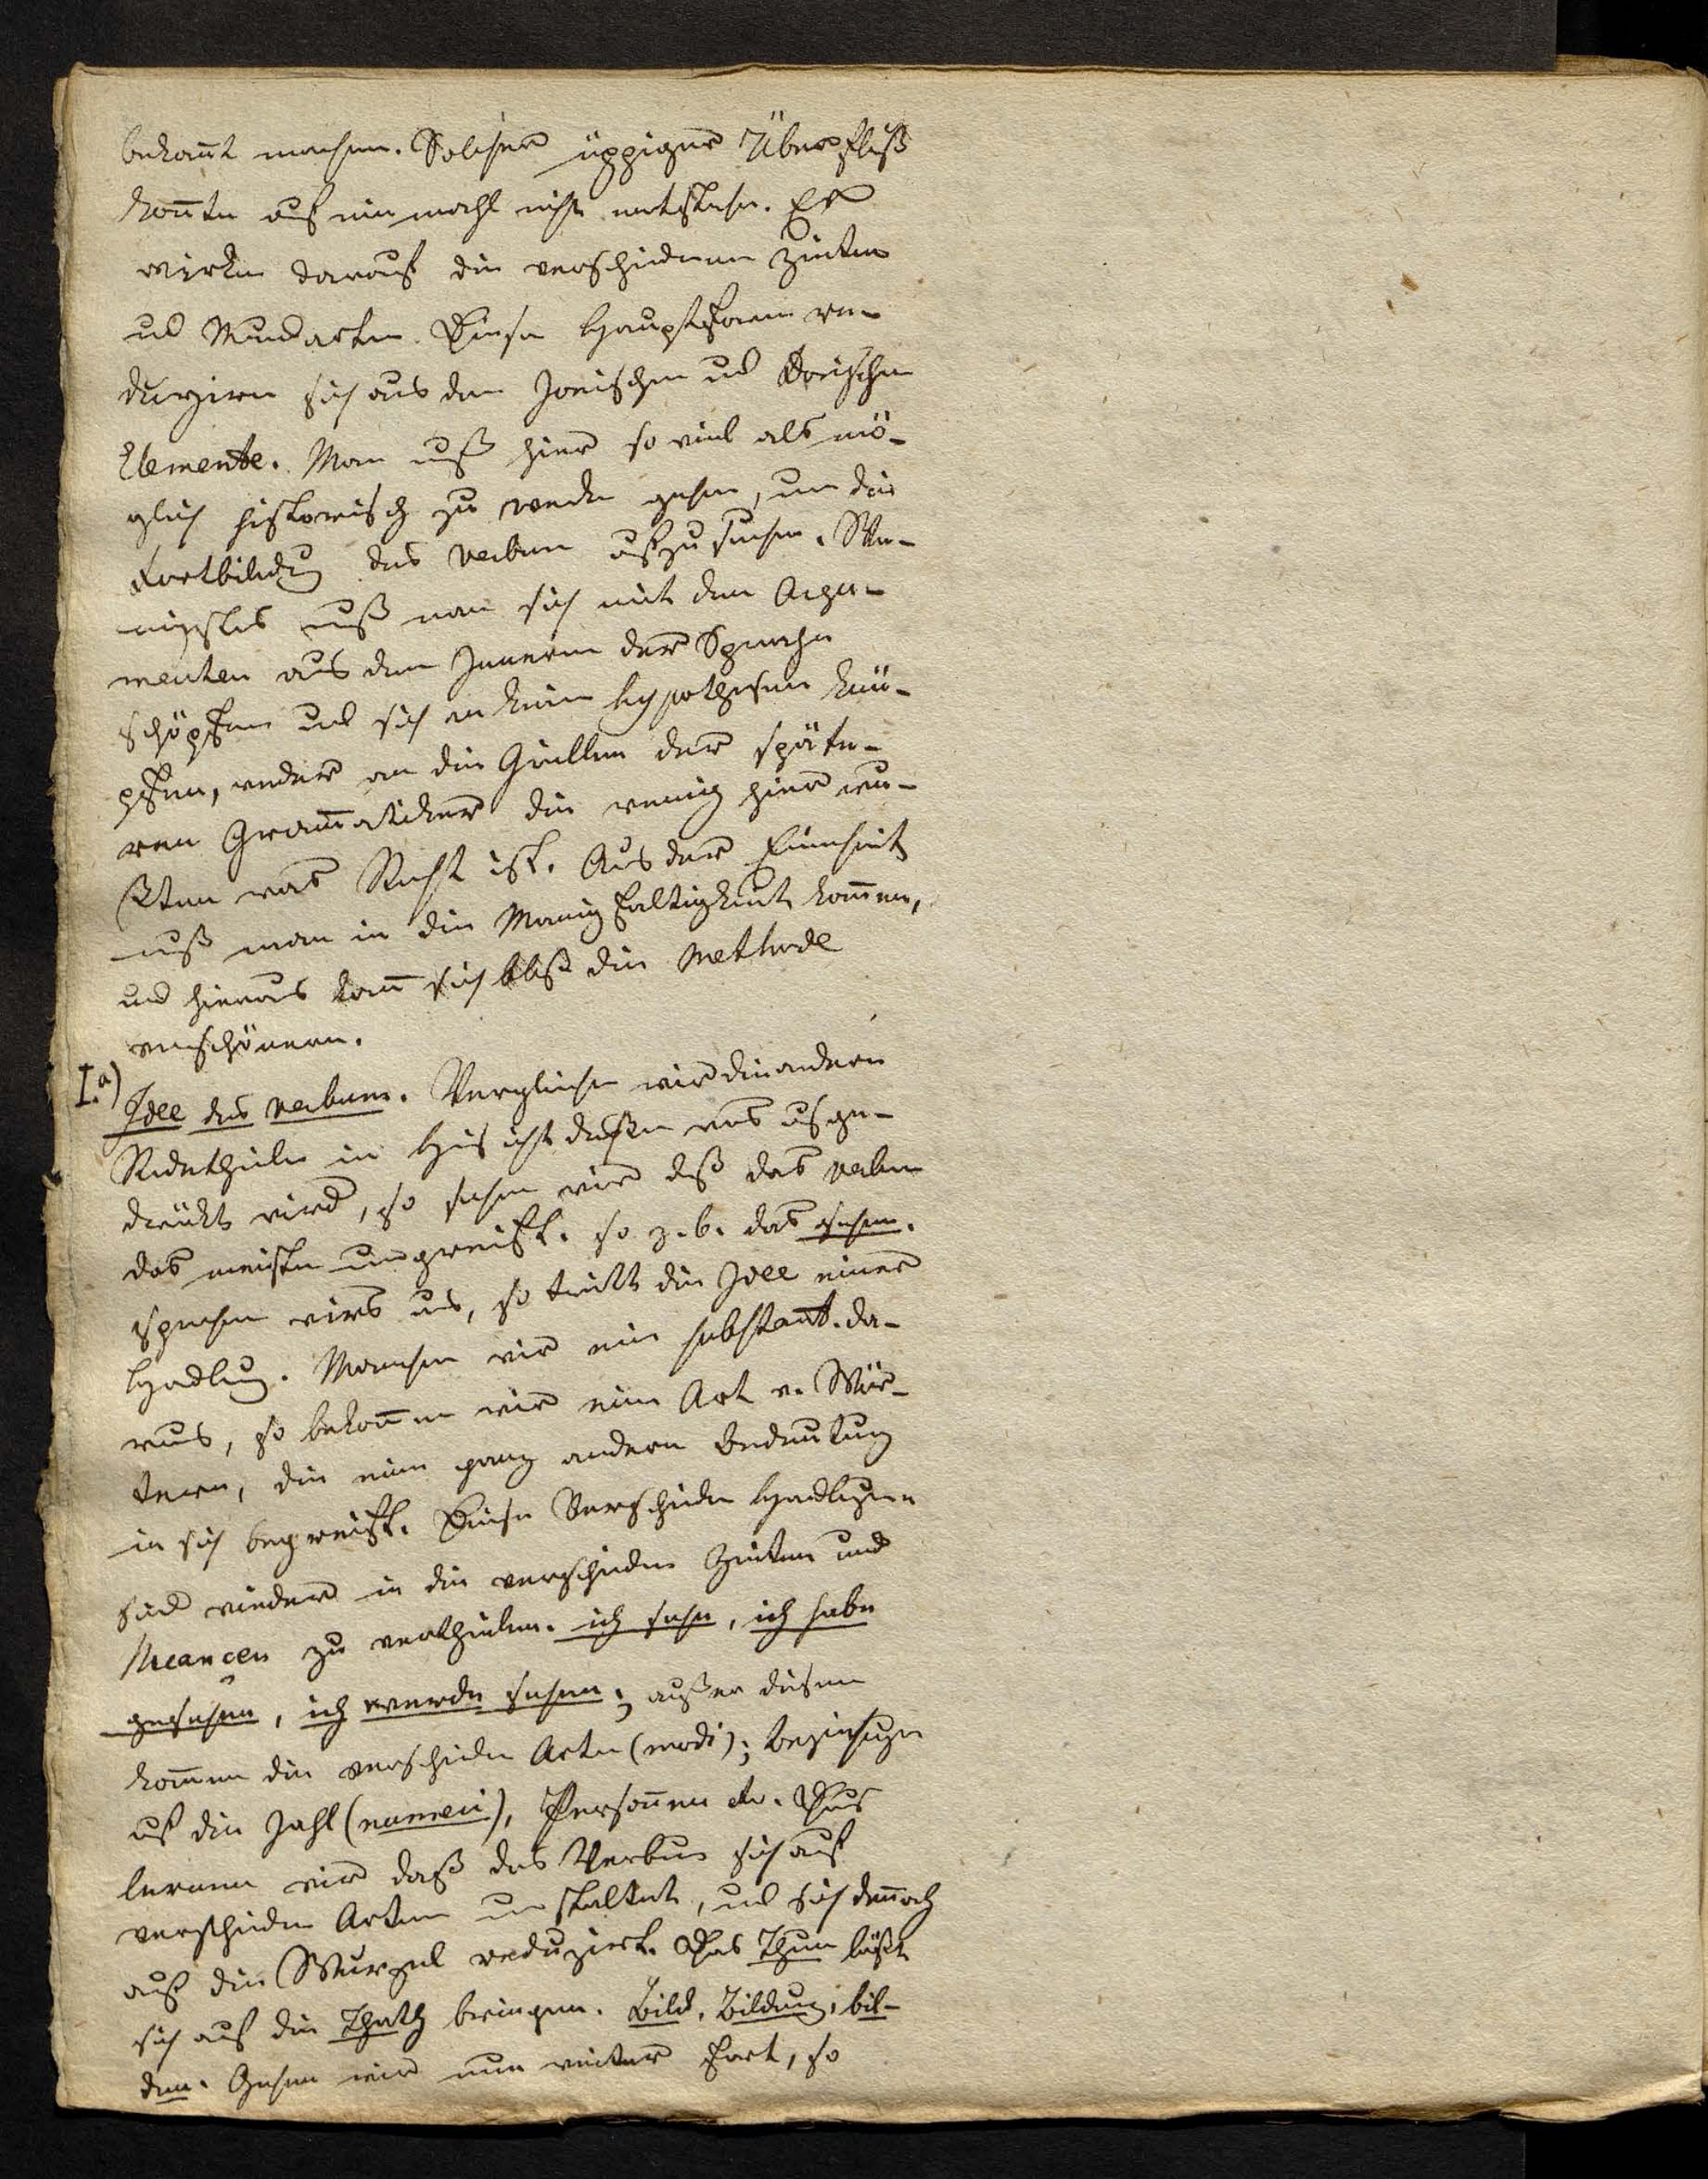 bekan̄t machen. Solcher üppiger Überfluß
kon̄te auf einmahl nicht entstehn. Es
wirken darauf die verschiedenen Zeiten
und Mundarten. Diese Hauptformen re-
duziren sich aus dem Jonischen und Dorischen
Elemente. Man muß hier so viel als mö-
glich historisch zu werke gehen, um die
Fortbildung des Verbum aufzusuchen. We-
nigstens muß man sich mit den Argu-
menten aus dem Innern der Sprache
schöpfen und sich an keine Hypothesen knü-
pfen, weder an die Grillen der späte-
ren Gram̄atiker die wenig hier wu-
ßten was Recht ist. Aus der Einheit
muß man in die Manigfaltigkeit kom̄en,
und hieraus kan̄ sich bloß die Methode
verschönern.
I.a) Idee des Verbum. Vergleichen wir die andern
Redetheile in Hinsicht dessen was ausge-
drückt wird, so sehen wir daß das Verbum
das meiste umgreift. so z. b. das sehen.
sprechen wirs aus, so tritt die Idee einer
Handlung. Machen wir ein substant. da-
raus, so bekom̄en wir eine Art v. Wör-
tern, die eine ganz andere Bedeutung
in sich begreift. Diese Verschiedene Handlungen
sind wieder in die verschiedene Zeiten und
Nuancen zu vertheilen. ich sehe, ich habe
gesehen, ich werde sehen; außer diesem
kom̄en die verschiedene Arten (modi); beziehungen
auf die Zahl (numeri), Person̄en etc. Daus
lernen wir daß das Verbum sich auf
verschiedene Arten umstaltet, und sich den̄och
auf die Wurzel reduziert. Das Thun läßt
sich auf die Thath bringen. Bild, Bildung, bil-
den. Gehen wir nun weiter fort, so